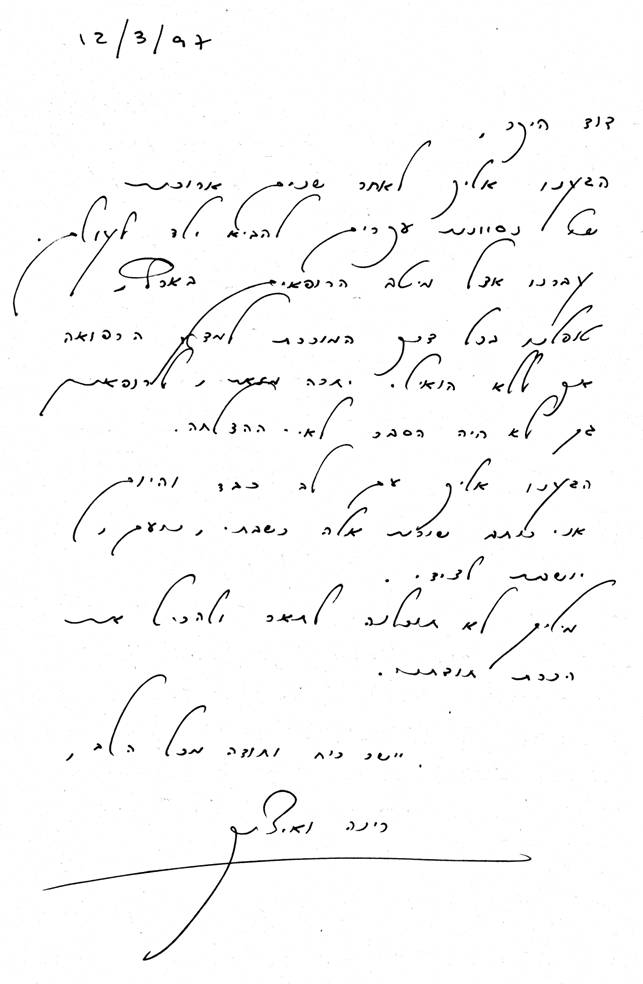 12/3/97
דוד היקר,
הגענו אליך לאחר שנים ארוכות
של נסיונות עקרים להביא ילד לעולם.
עברנו אצל מיטב הרופאים בארץ,
טופלנו בכל דרך המוכרת למדע הרפואה
אך ללא הואיל. יתכה לרופאים
גם לא היה הסבר לאי ההצלחה.
הגענו אליך עם לב כבד והיום
אני כותב שורות אלה כשבתי, נועם,
יושבת לצידי.
מילים לא תוכלנה לתאר ולהכיל את
הכרת תודתנו.
יישר כח ותודה מכל הלב,
רינה ואיציק